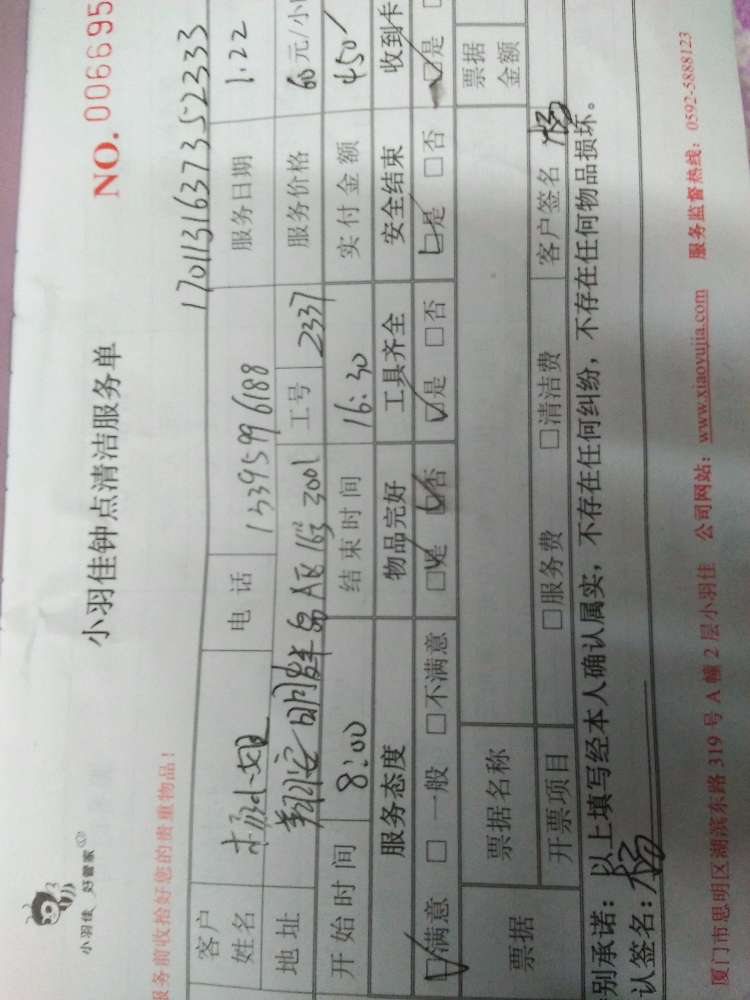 小羽佳 好管家
小羽佳钟点清洁服务单
NO. 006695
服务前收拾好您的贵重物品!
1701131637352333
客户姓名 杨小姐 电话 1395996188 服务日期 1.22
地址 翔安明发半岛A区 3001 工号 2337 服务价格 60元/小
开始时间 8:00 结束时间 16:30 实付金额 450
服务态度 物品完好 工具齐全 安全结束 收到卡
☑满意 □一般 □不满意 ☑是 ☑否 ☑是 □否 ☑是 □否 ☑是
票据 票据名称 票据金额
开票项目 □服务费 □清洁费 客户签名 杨
别承诺:以上填写经本人确认属实,不存在任何纠纷,不存在任何物品损坏。
认签名:杨
厦门市思明区湖滨东路319号A幢2层小羽佳 公司网站:www.xiaoyujia.com 服务监督热线:0592-5888123